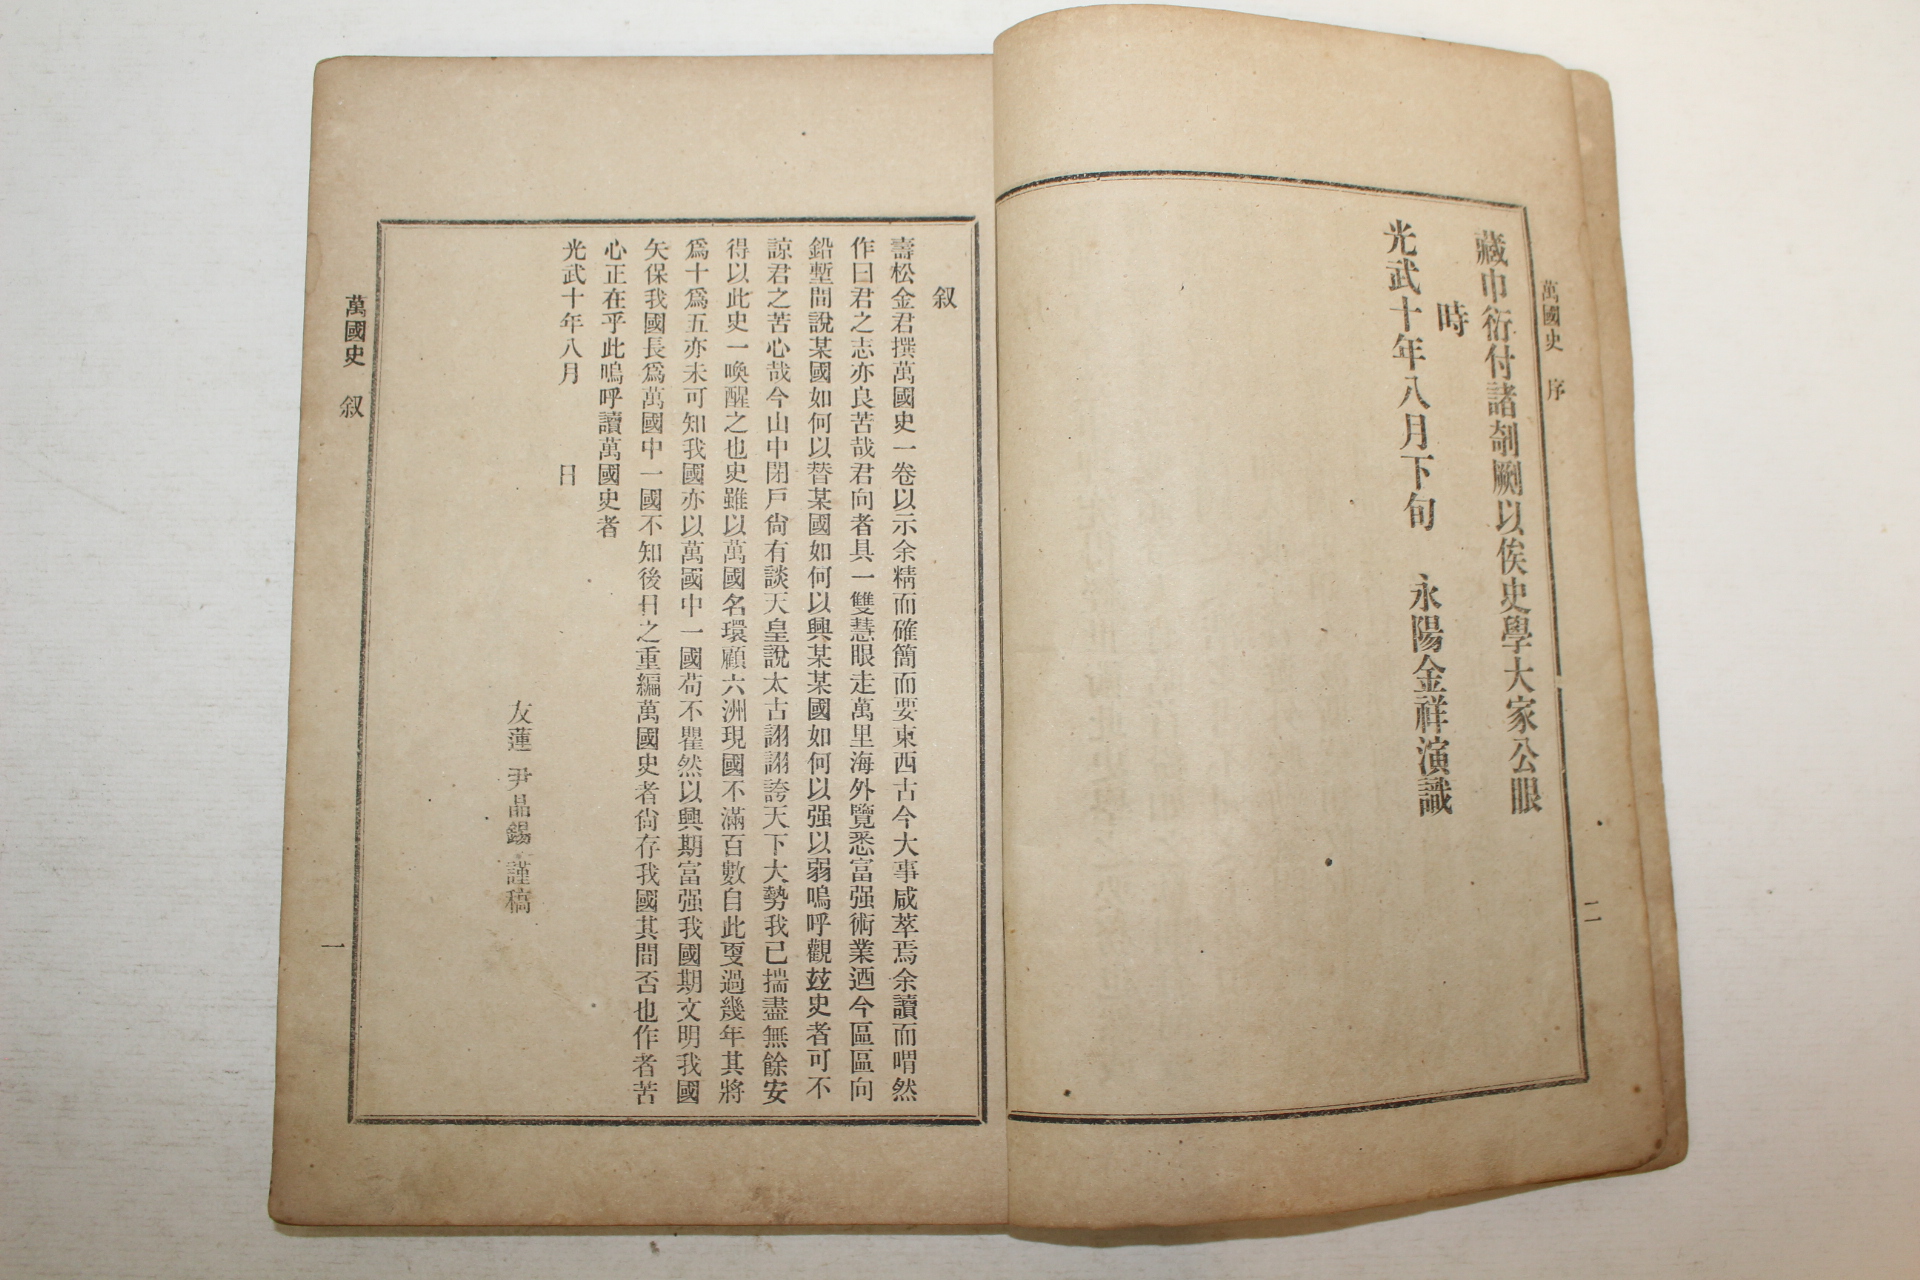 萬國史 序
二
藏巾衍付諸剞劂以俟史學大家公眼
時
光武十年八月下旬 永陽金祥演識
叙
壽松金君撰萬國史一卷以示余精而確簡而要東西古今大事咸萃焉余讀而喟然
作曰君之志亦良苦哉君向者具一雙慧眼走萬里海外覽悉富强術業迺今區區向
鉛塹間說某國如何以替某國如何以興某某國如何以强以弱嗚呼觀玆史者可不
諒君之苦心哉今山中閉戶尙有談天皇說太古詡詡誇天下大勢我已揣盡無餘安
得以此史一喚醒之也史雖以萬國名環顧六洲現國不滿百數自此叓過幾年其將
爲十爲五亦未可知我國亦以萬國中一國苟不瞿然以興期富强我國期文明我國
矢保我國長爲萬國中一國不知後日之重編萬國史者尙存我國其間否也作者苦
心正在乎此嗚呼讀萬國史者
光武十年八月 日
友蓮 尹晶錫 謹稿
萬國史 叙
一